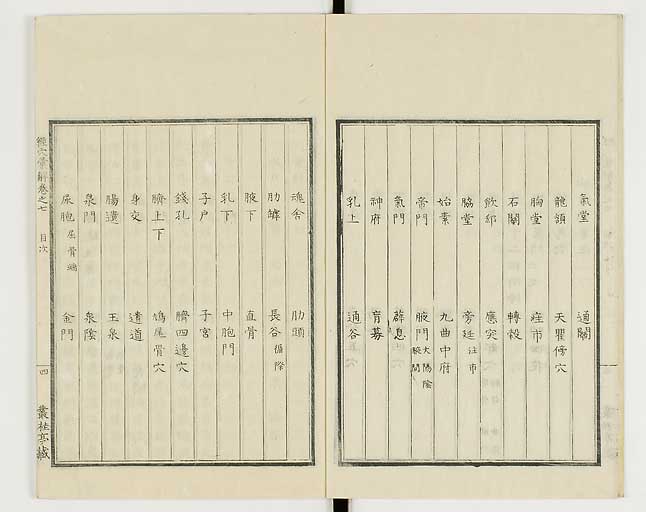 氣堂 通關
龍頷 天瞿傍穴
胸堂 疰市
石關 轉穀
飲郄 應突
脇堂 旁廷 注市
始素 九曲中府
帝門 腋門 大陽陰 腋間
氣門 薜息
神府 肓募
乳上 通谷
魂舍 肋頭
肋罅 長谷 循際
腋下 直骨
乳下 中胞門
子戶 子宮
錢孔 臍四邊穴
臍上下 鳩尾骨穴
身交 遺道
腸遺 玉泉
泉門 泉陰
尿胞 屈骨端 金門
經穴彙解卷之七 目次 四 叢桂亭藏